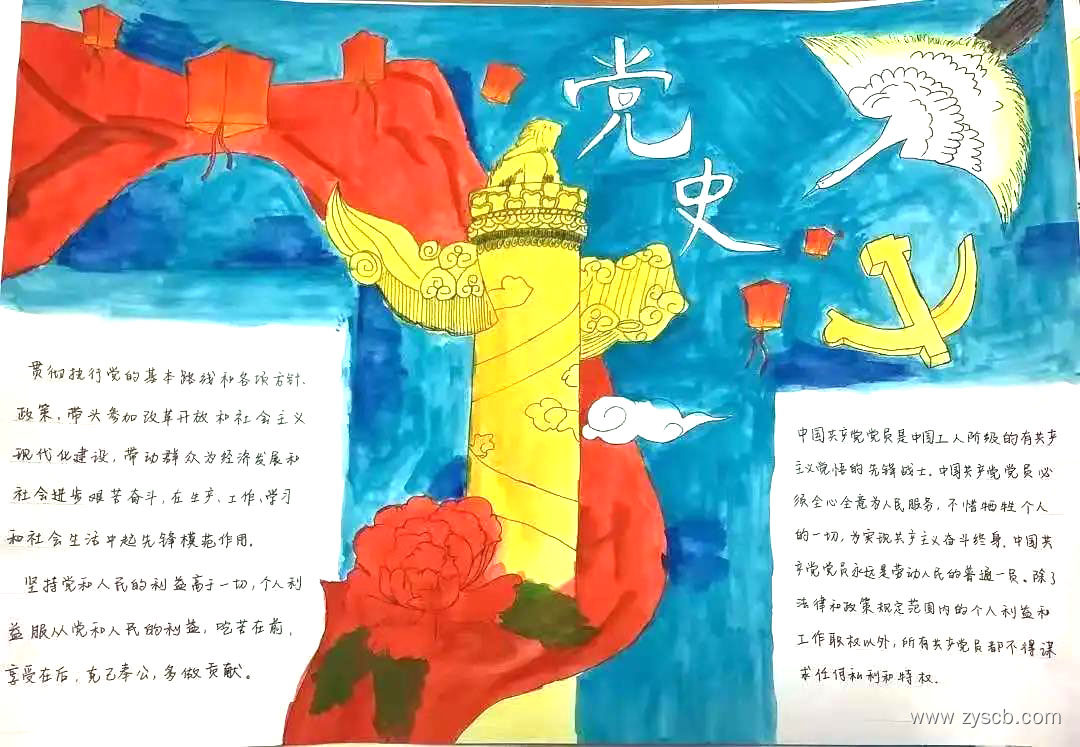 党史
贯彻执行党的基本路线和各项方针、
政策，带头参加改革开放和社会主义
现代化建设，带动群众为经济发展和
社会进步艰苦奋斗，在生产、工作、学习
和社会生活中起先锋模范作用。
坚持党和人民的利益高于一切，个人利
益服从党和人民的利益，吃苦在前，
享受在后，克己奉公，多做贡献。
中国共产党党员是中国工人阶级的有共产
主义觉悟的先锋战士。中国共产党党员必
须全心全意为人民服务，不惜牺牲个人
的一切，为实现共产主义奋斗终身。中国共
产党党员永远是劳动人民的普通一员。除了
法律和政策规定范围内的个人利益和
工作职权以外，所有共产党员都不得谋
求任何私利和特权.
www.zyscb.com